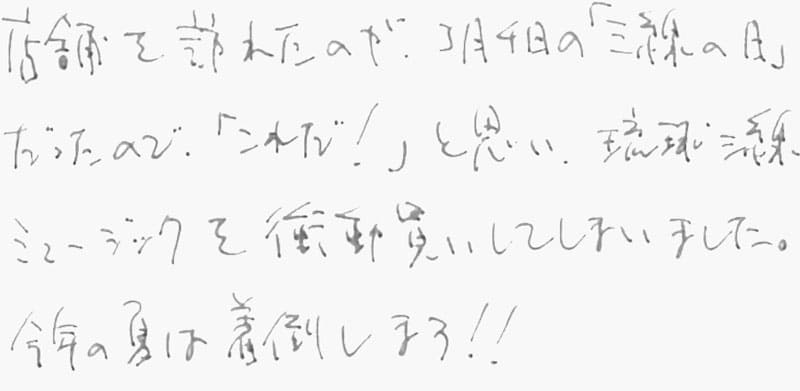 店舗を訪れたのが、3月4日の「三線の日」
だったので、「これだ!」と思い、琉球三線
ミュージックを衝動買いしてしまいました。
今年の夏は着倒しまろ!!